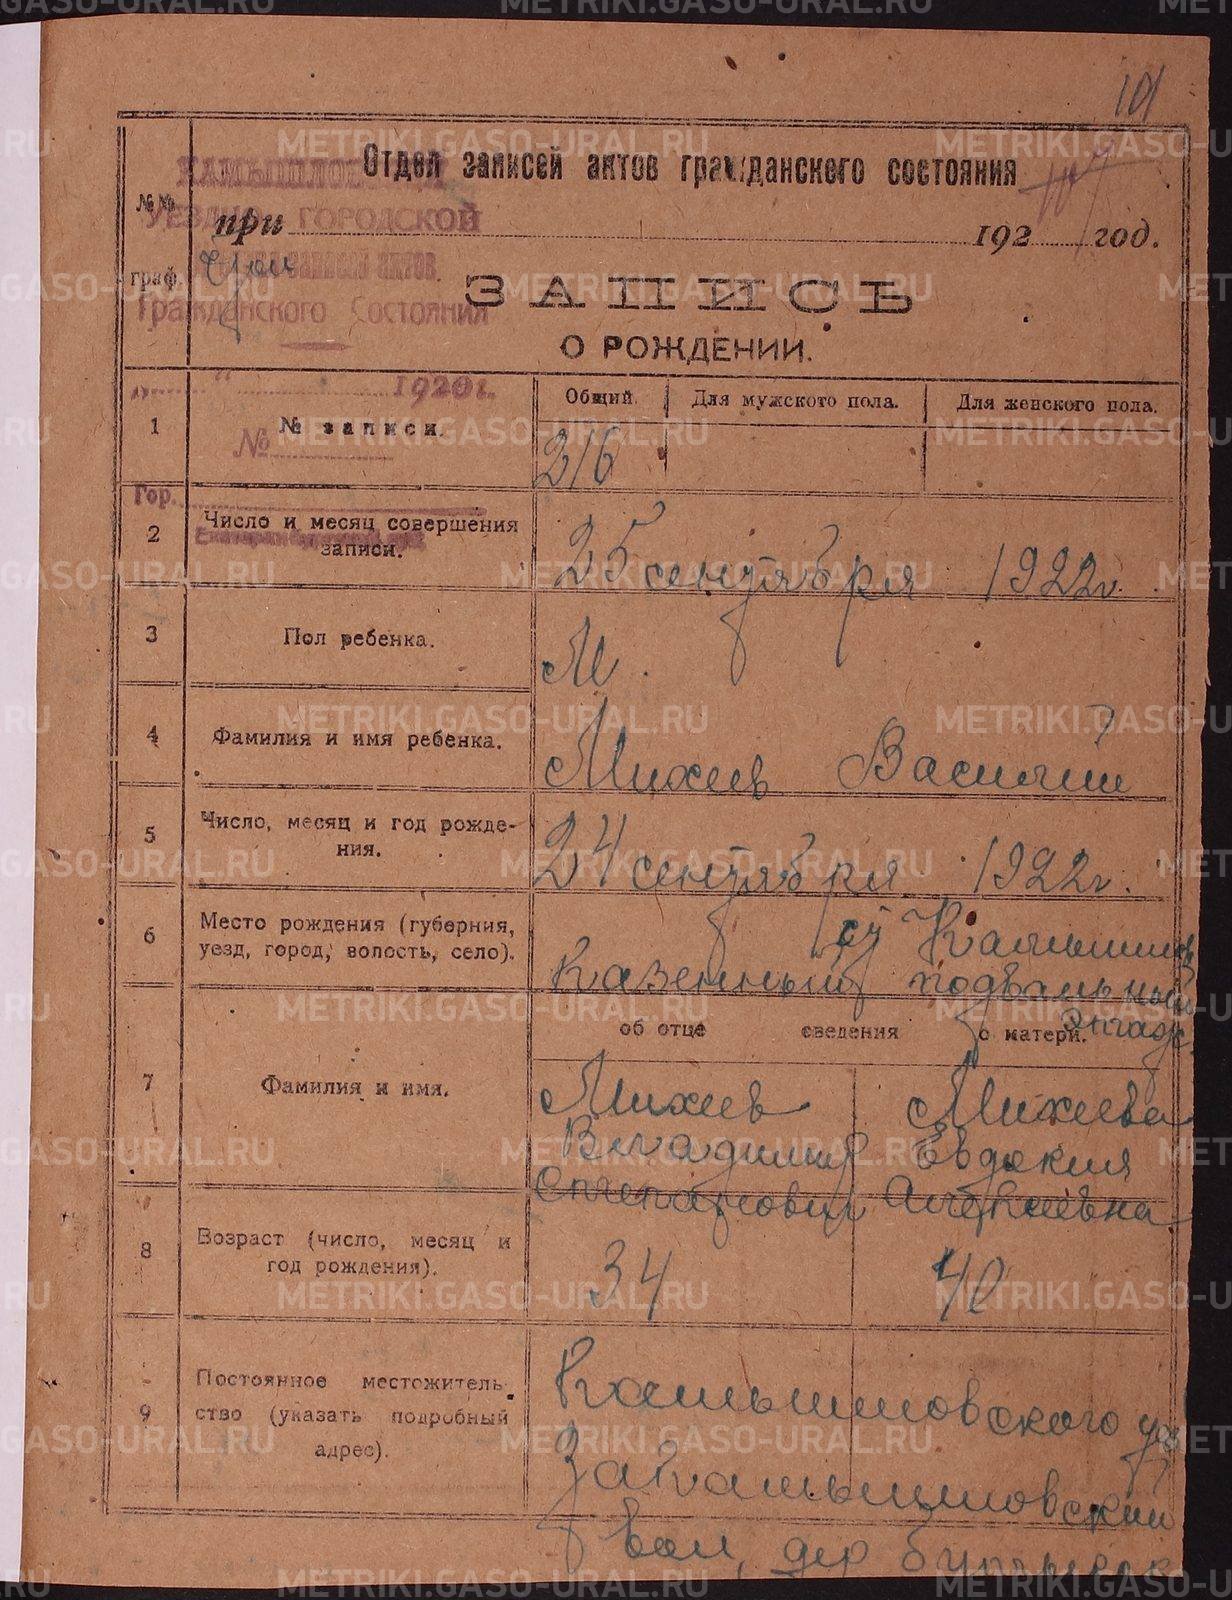 101
КАМЫШЛОВСКИЙ
Отдел записей актов гражданского состояния
№№
УЕЗДНО-ГОРОДСКОЙ
при 192 год.
граф.
записи актов.
Гражданского Состояния
ЗАПИСЬ
О РОЖДЕНИИ.
" 1920 г.
Общий. Для мужского пола. Для женского пола.
1 № записи. 316
№
Гор.
2 Число и месяц совершения
записи. 25 сентября 1922 г.
3 Пол ребенка. М.
4 Фамилия и имя ребенка. Михеев Василий
5 Число, месяц и год рожде-
ния. 24 сентября 1922 г.
6 Место рождения (губерния,
уезд, город, волость, село).
Казенный
об отце сведения о матери.
7 Фамилия и имя.
Михеев Михеева
Владимир Евдокия
Степанович Алексеевна
8 Возраст (число, месяц и
год рождения). 34 40
9 Постоянное местожитель-
ство (указать подробный
адрес).
Камышловского у.
Закамышловский
вол, дер
METRIKI.GASO-URAL.RU